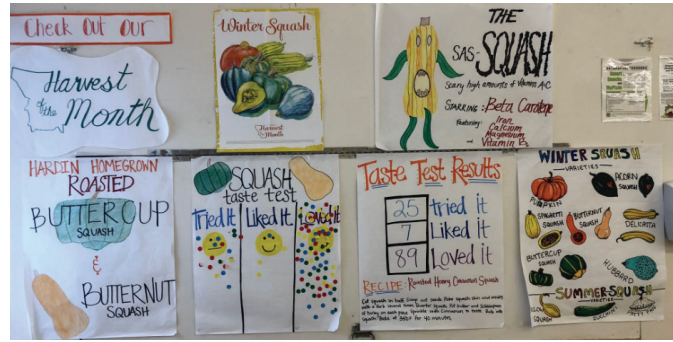 Check Out Our
Harvest
of the
Month
Winter Squash
Harvest
of the Month
THE
SAS-SQUASH
Scary high amounts of Vitamins A&C
STARRING: Beta Carotene
Featuring:
Iron
Calcium
Magnesium
and Vitamin B6
HARDIN HOMEGROWN
ROASTED
BUTTERCUP
SQUASH
&
BUTTERNUT
SQUASH
SQUASH
taste test
Tried It
Liked It
Loved It
Taste Test Results
25 tried it
7 Liked it
89 Loved it
RECIPE: Roasted Honey Cinnamon Squash
WINTER SQUASH
VARIETIES
PUMPKIN
ACORN
SQUASH
SPAGHETTI
SQUASH
BUTTERNUT
SQUASH
DELICATA
BUTTERCUP
SQUASH
HUBBARD
SUMMER SQUASH
VARIETIES
ZUCCHINI
PATTY PAN